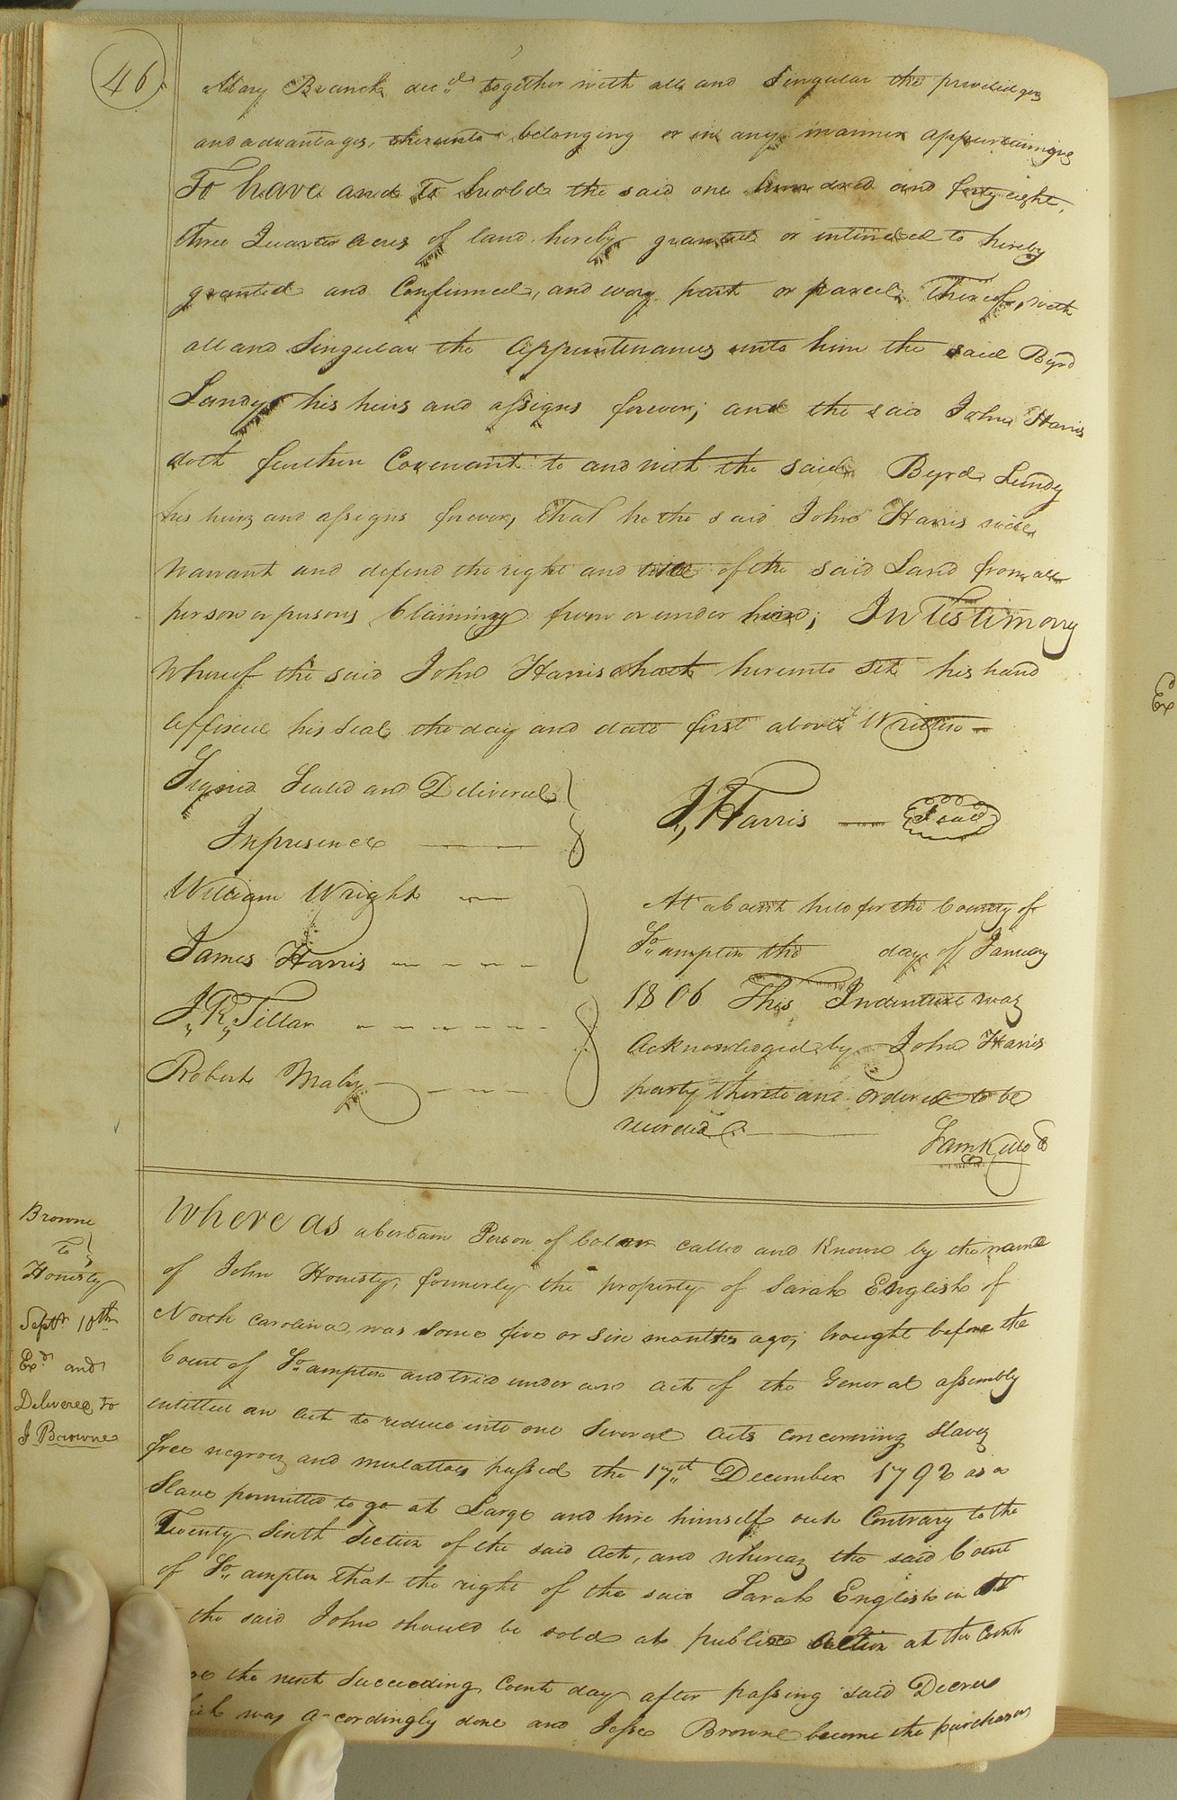 46
Mary Branch dec.d together with all and Singular the priviledges
and advantages, thereunto belonging or in any manner appurtaining
To have and To hold the said one hundred and forty eight,
three Quarter acres of land hereby granted or intinded to hereby
granted and Confirmed, and every part or parcel Thereof, with
all and Singular the Appurtenances unto him the said Byrd
Lundy his heirs and assigns forever; and the said John Harris
doth further Covenant to and with the said Byrd Lundy
his heirs and assigns forever, That he the said John Harris will
Warrant and defend the right and title of the said Land from all
person or persons Claiming from or under him; In Testimony
Whereof the said John Harris hath hereunto Set his hand
Affixed his Seal the day and date first above Written
Signed Sealed and Delivered
In presence
William Wright
James Harris
J,, R,, Tillar
Robert Maby
J,, Harris Seal
At a Court held for the County of
So,,ampton the day of January
1806 This Indenture was
Acknowledged by John Harris
party thereto and ordered to be
recorded
Browne
To
Honesty
Sept 10th
Exd and
Delivered to
J Browne
Where as a Certain Person of Colour called and Known by the name
of John Honesty, formerly the property of Sarah English of
North Carolina, was some five or six months ago, brought before the
Court of So,,ampton and tried under an act of the General assembly
entitled an Act to reduce into one Several Acts concerning Slaves
free negroes and mulattoes passed the 17th December 1792 as a
Slave permitted to go at Large and hire himself out Contrary to the
Twenty Sixth Section of the said Act, and whereas the said Court
of So,,ampton That the right of the said Sarah English in
the said John should be sold at public at the Court
the next Succeeding Court day after passing said Decree
was Accordingly done and Jesse Browne became the purchaser